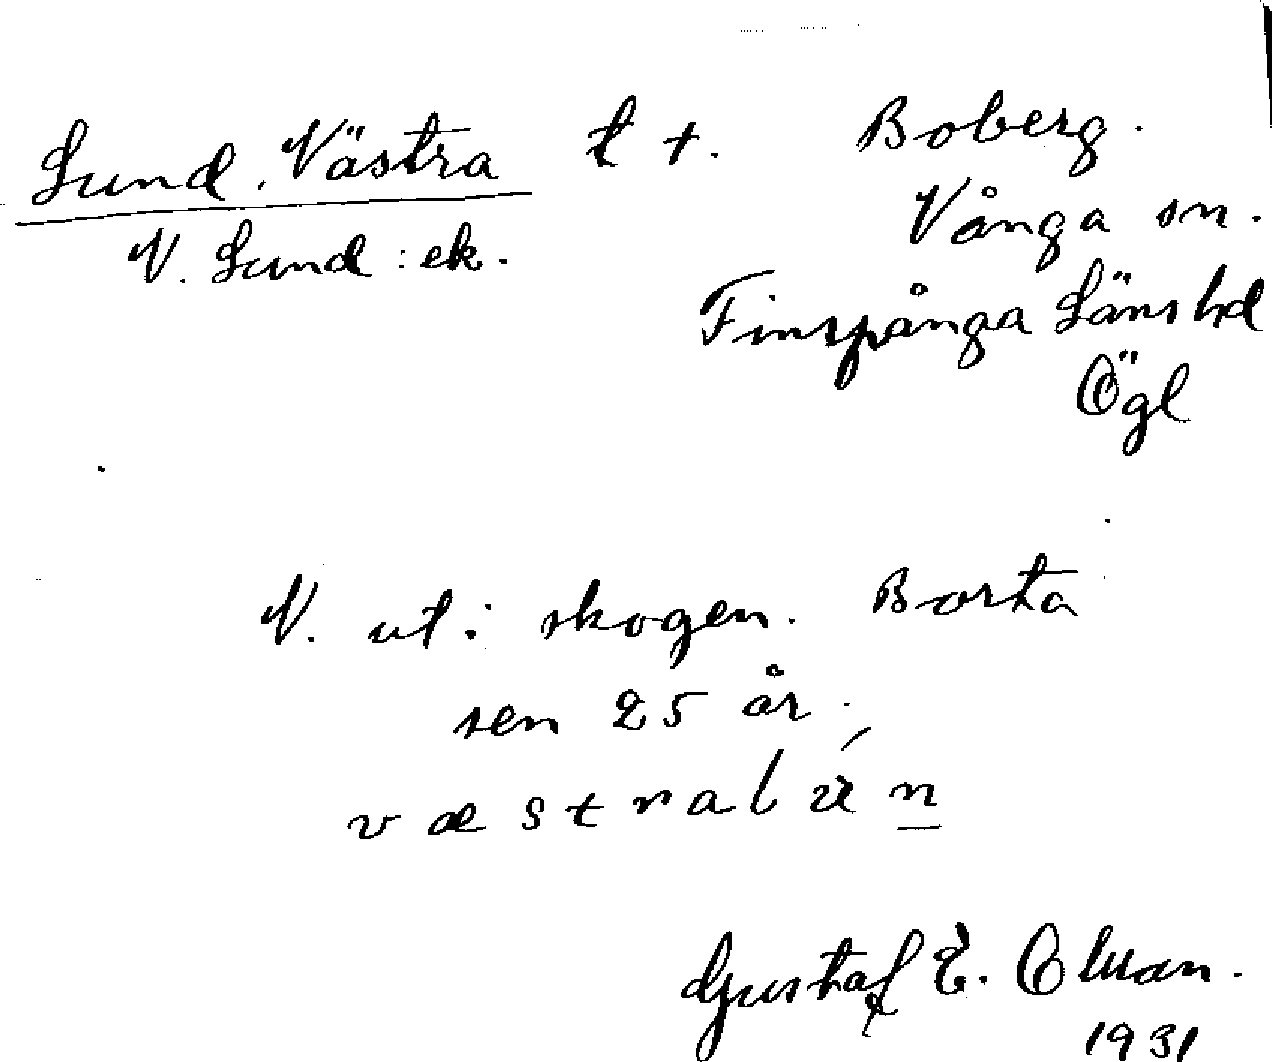 Lund, Västra t +. Boberg.
V. Lund: ek. Vånga sn.
Finspånga Läns hd
Ögl
V. ut i skogen. Borta
sen 25 år.
væstra l ú n
Gustaf E. Olsson.
1931